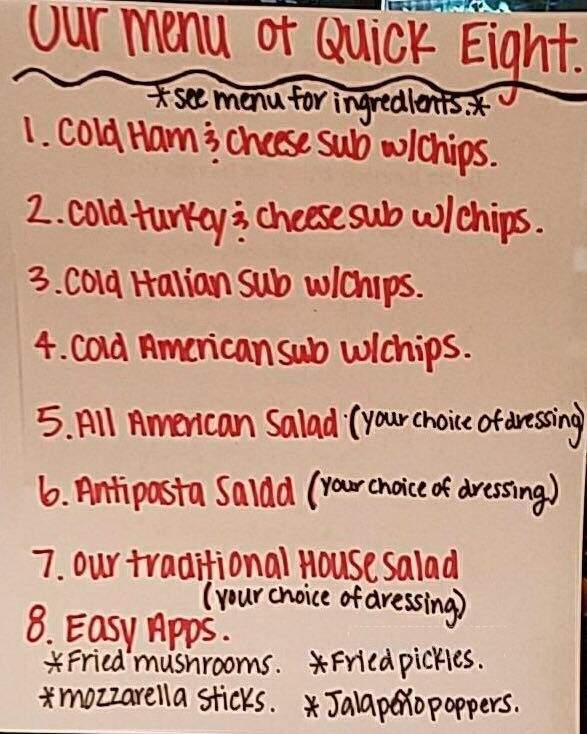 Our menu of Quick Eight.
*see menu for ingredients.*
1. Cold Ham & cheese sub w/chips.
2. Cold turkey & cheese sub w/chips.
3. Cold Italian sub w/chips.
4. Cold American sub w/chips.
5. All American Salad (your choice of dressing)
6. Antipasta Salad (your choice of dressing)
7. Our traditional House salad
(your choice of dressing)
8. Easy Apps.
*Fried mushrooms. *Fried pickles.
*mozzarella sticks. *Jalapeño poppers.